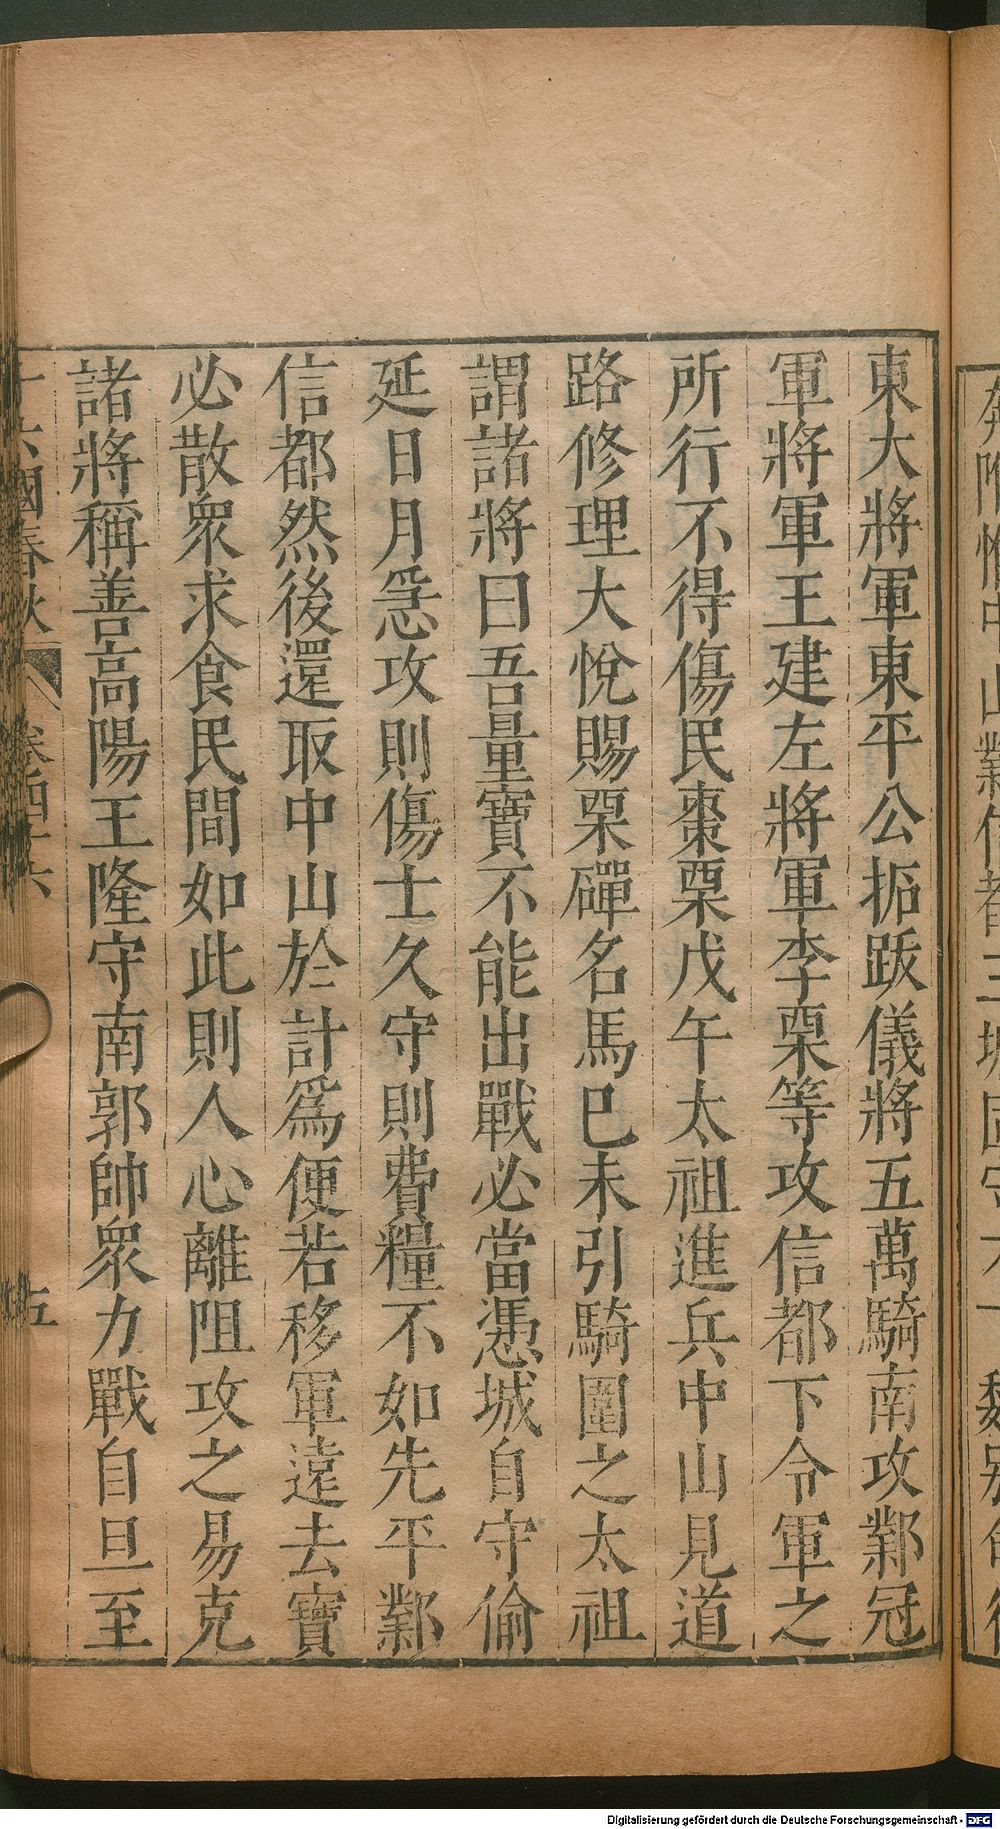 東大將軍東平公扼跋儀將五萬騎南攻鄴冠
軍將軍王建左將軍李栗等攻信都下令軍之
所行不得傷民棗栗戊午太祖進兵中山見道
路修理大悅賜栗磾名馬巳未引騎圍之太祖
謂諸將曰吾量寶不能出戰必當憑城自守偷
延日月急攻則傷士久守則費糧不如先平鄴
信都然後還取中山於計爲便若移軍遠去寶
必散衆求食民間如此則人心離阻攻之易克
諸將稱善高陽王隆守南郭帥衆力戰自旦至
十六國春秋 卷四十六 五
Digitalisierung gefördert durch die Deutsche Forschungsgemeinschaft - DFG